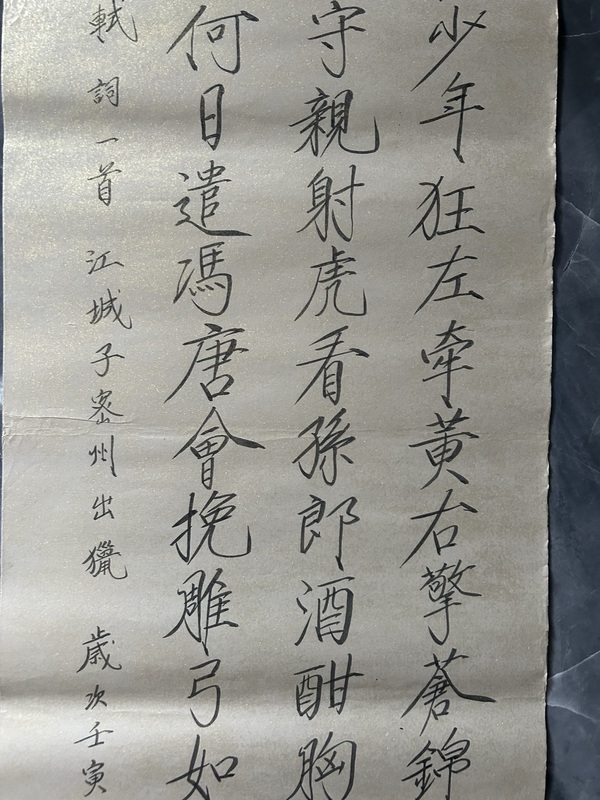 少年狂左牽黃右擎蒼錦
守親射虎看孫郎酒酣胸
何日遣馮唐會挽雕弓如
軾詞一首江城子密州出獵歲次壬寅